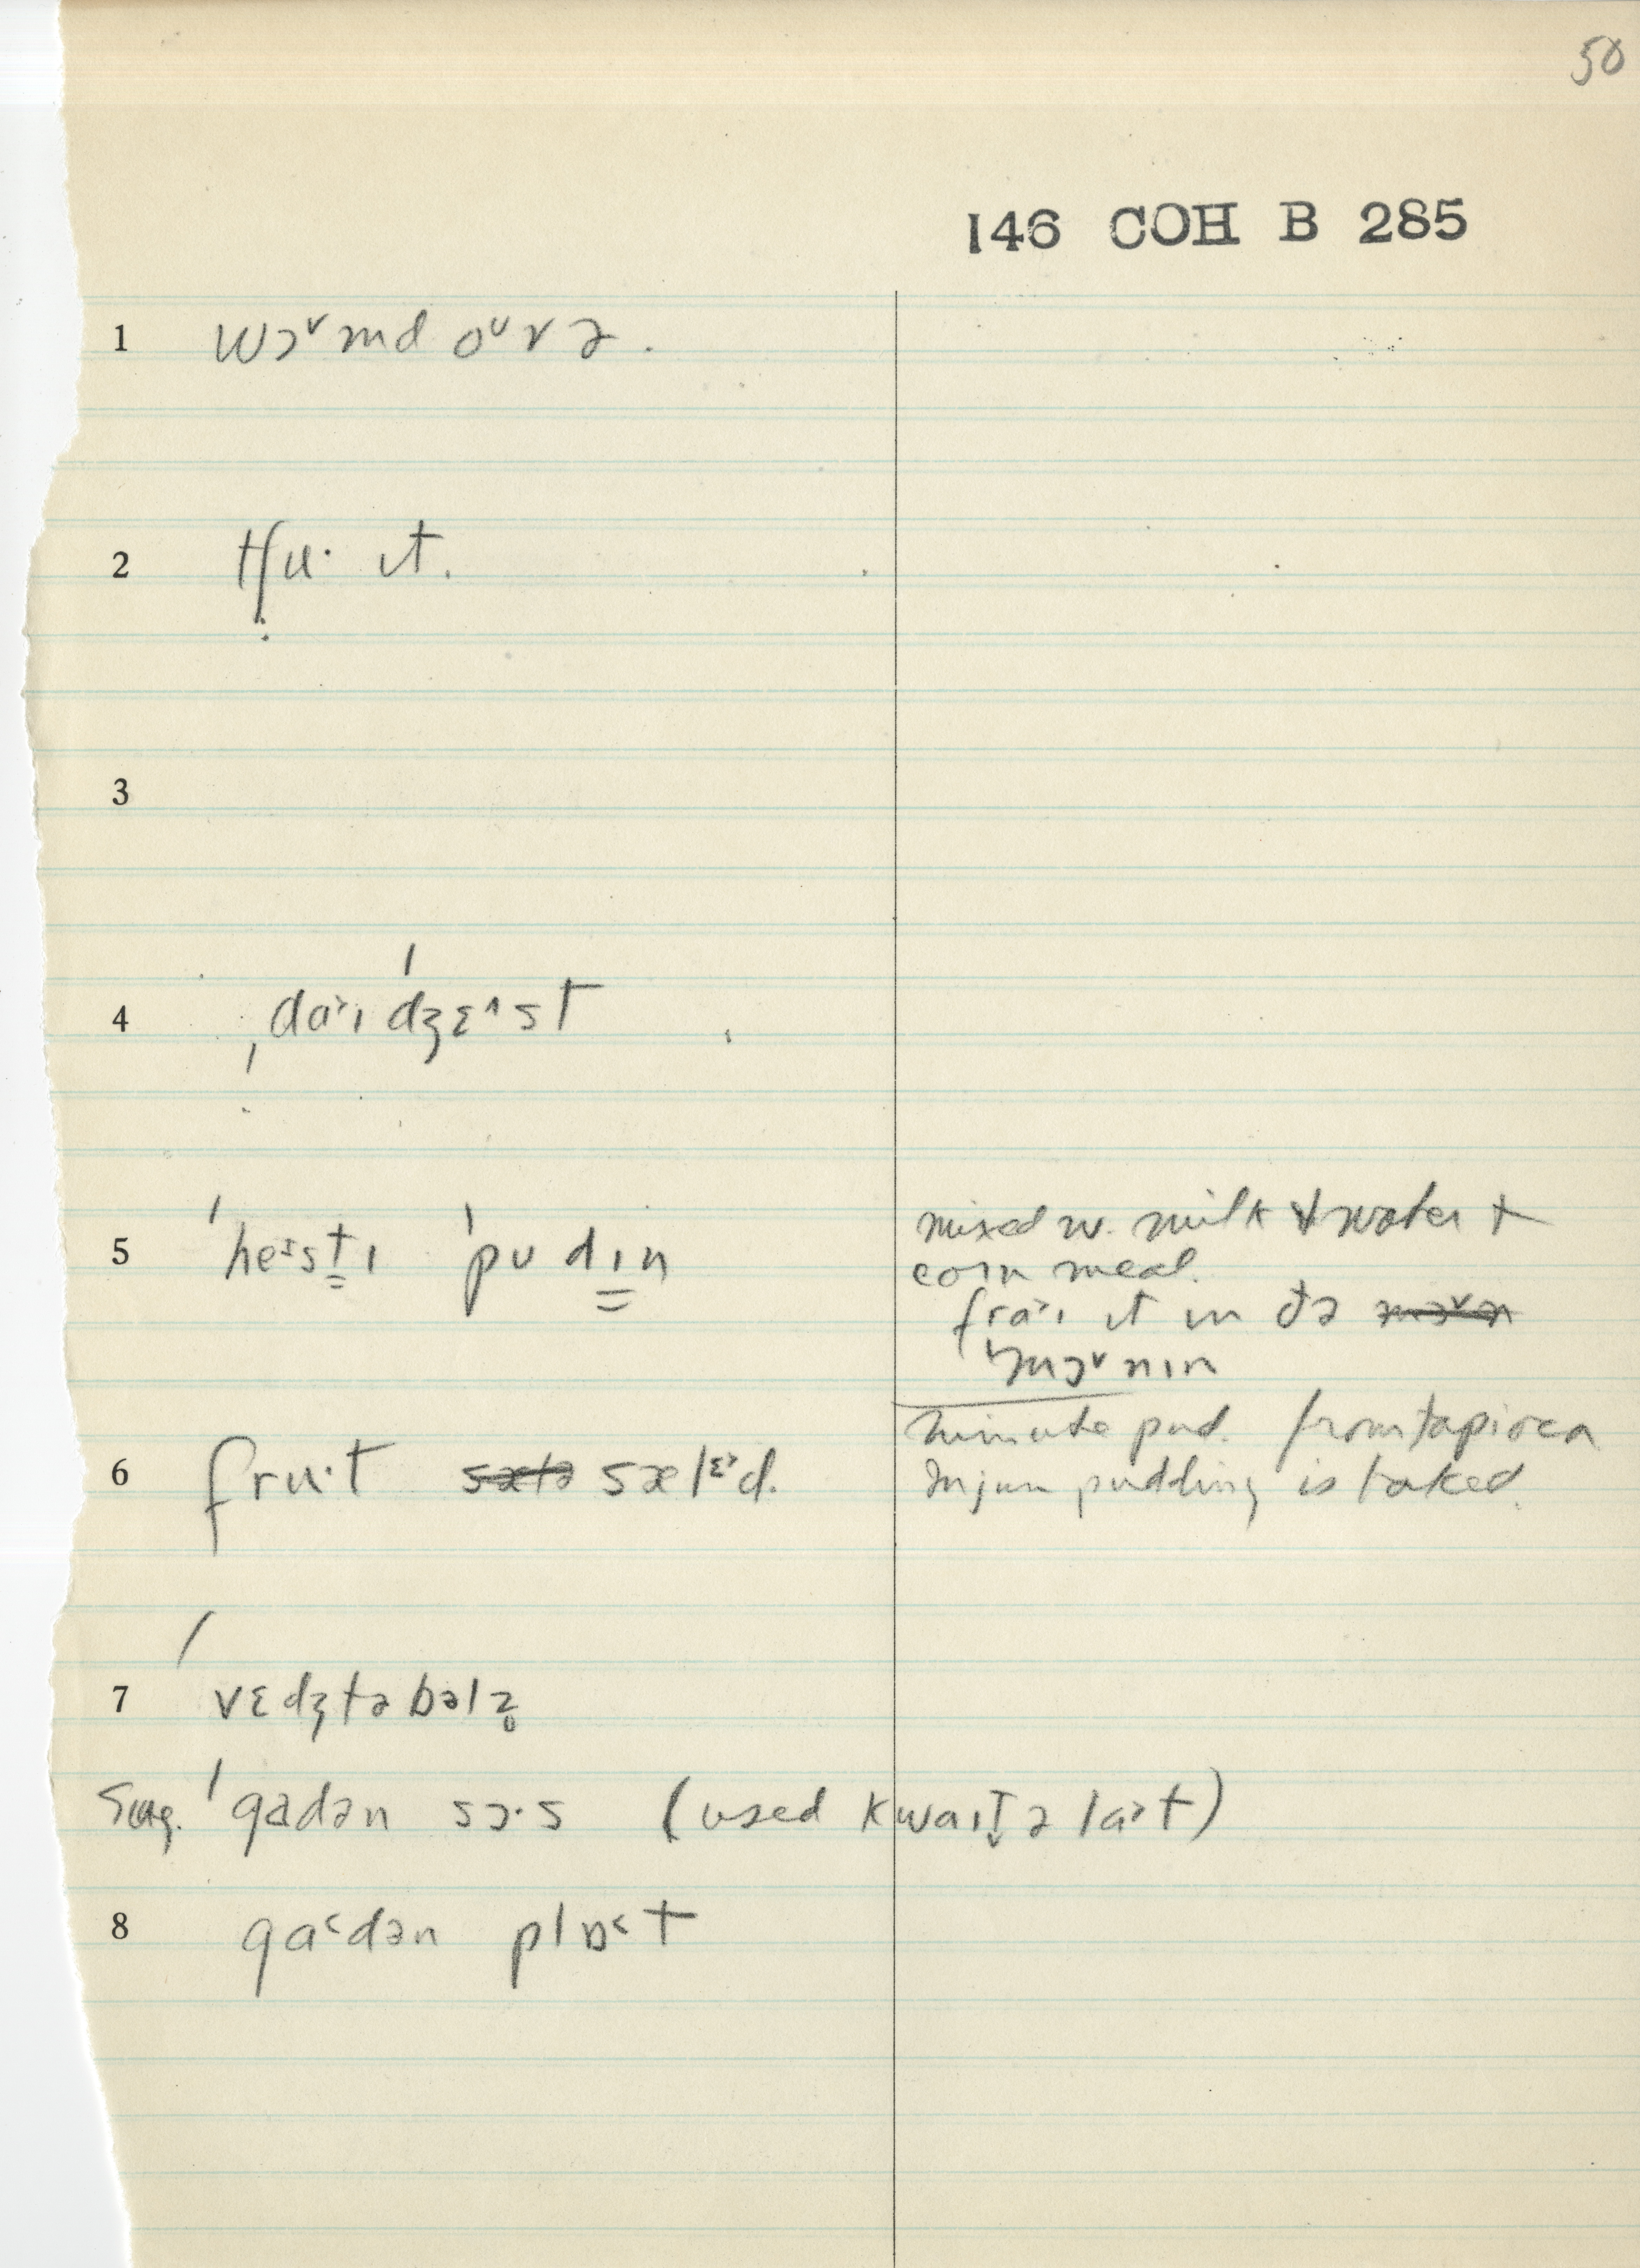 50
146 COH B 285
1 wɔ˅md oᵛvə.
2 tʃu· ɪt.
3
4 ˌdɑ˃ɪˈdʒɛ˄st
5 ˈhe˃stɪ ˈpʊdɪn
mixed w. milk & water +
corn meal.
frɑ˃ɪ ɪt ɪn ðə mɔ˅n
ˈmɔ˅nɪn
6 fru·t sælə sælᵋ˃d.
minute pud. from tapioca
Injun pudding is baked.
7 ˈvɛdʒtəbəlz̥
Sug. ˈgadən sɔ·s (used kwaɪt̬ ə la˃t)
8 ga˂dən plɒ˂t